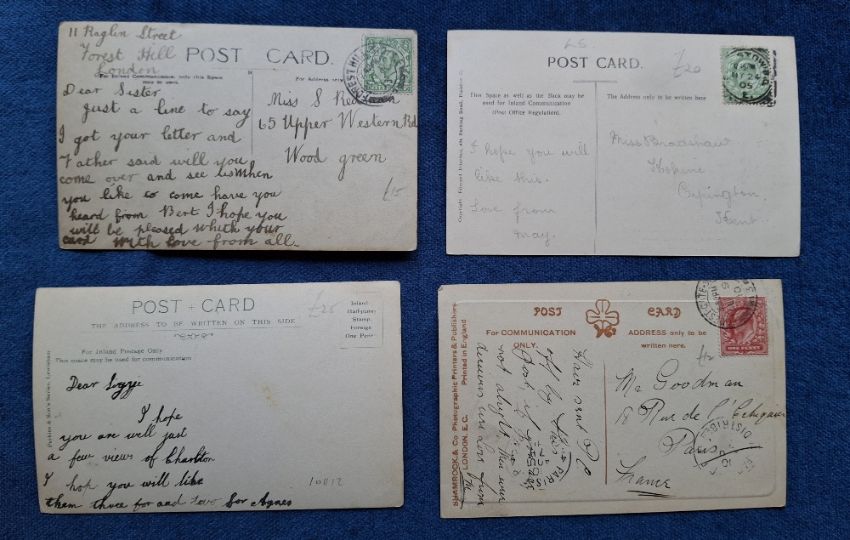 11 Raglin Street
Forest Hill
London
POST CARD.
Dear Sister
Just a line to say
I got your letter and
Father said will you
come over and see us When
you like to come have you
heard from Bert I hope you
will be plessed whith your
card With Love from all.
Miss S
65 Upper Western Rd
Wood green
£15
POST CARD.
£20
This Space as well as the Back may be
used for Inland Communication
(Post Office Regulation).
The Address only to be written here
I hope you will
like this.
Love from
May.
Miss Bradshaw
Orpington
Kent.
POST CARD
THE ADDRESS TO BE WRITTEN ON THIS SIDE
£25
Inland
Halfpenny
Stamp,
Foreign
One Penny
For Inland Postage Only
This space may be used for communication
Dear
I hope
you are well just
a few views of Charlton
I hope you will like
them three for and two for Agnes
10012
POST CARD
For COMMUNICATION
ONLY.
ADDRESS only to be
written here.
SHAMROCK & Co Photographic Printers & Publishers
LONDON, E.C. Printed in England
Have sent P.C
off by this
Post, if
not alright then
ONE PENNY
Mr Goodman
18 Rue de
Paris
France
PARIS